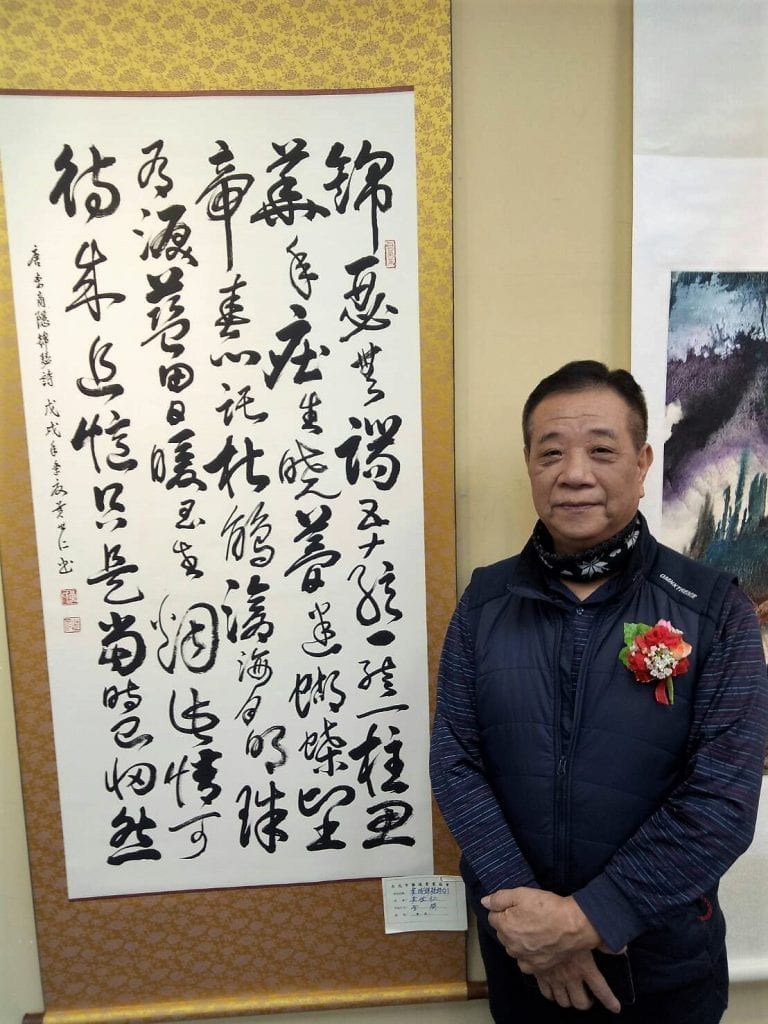 錦瑟無端五十絃一絃一柱思
華年莊生曉夢迷蝴蝶望
帝春心託杜鵑滄海月明珠
有淚藍田日暖玉生煙此情可
待成追憶只是當時已惘然
唐李商隱錦瑟詩 戊戌年季夏黃世仁書